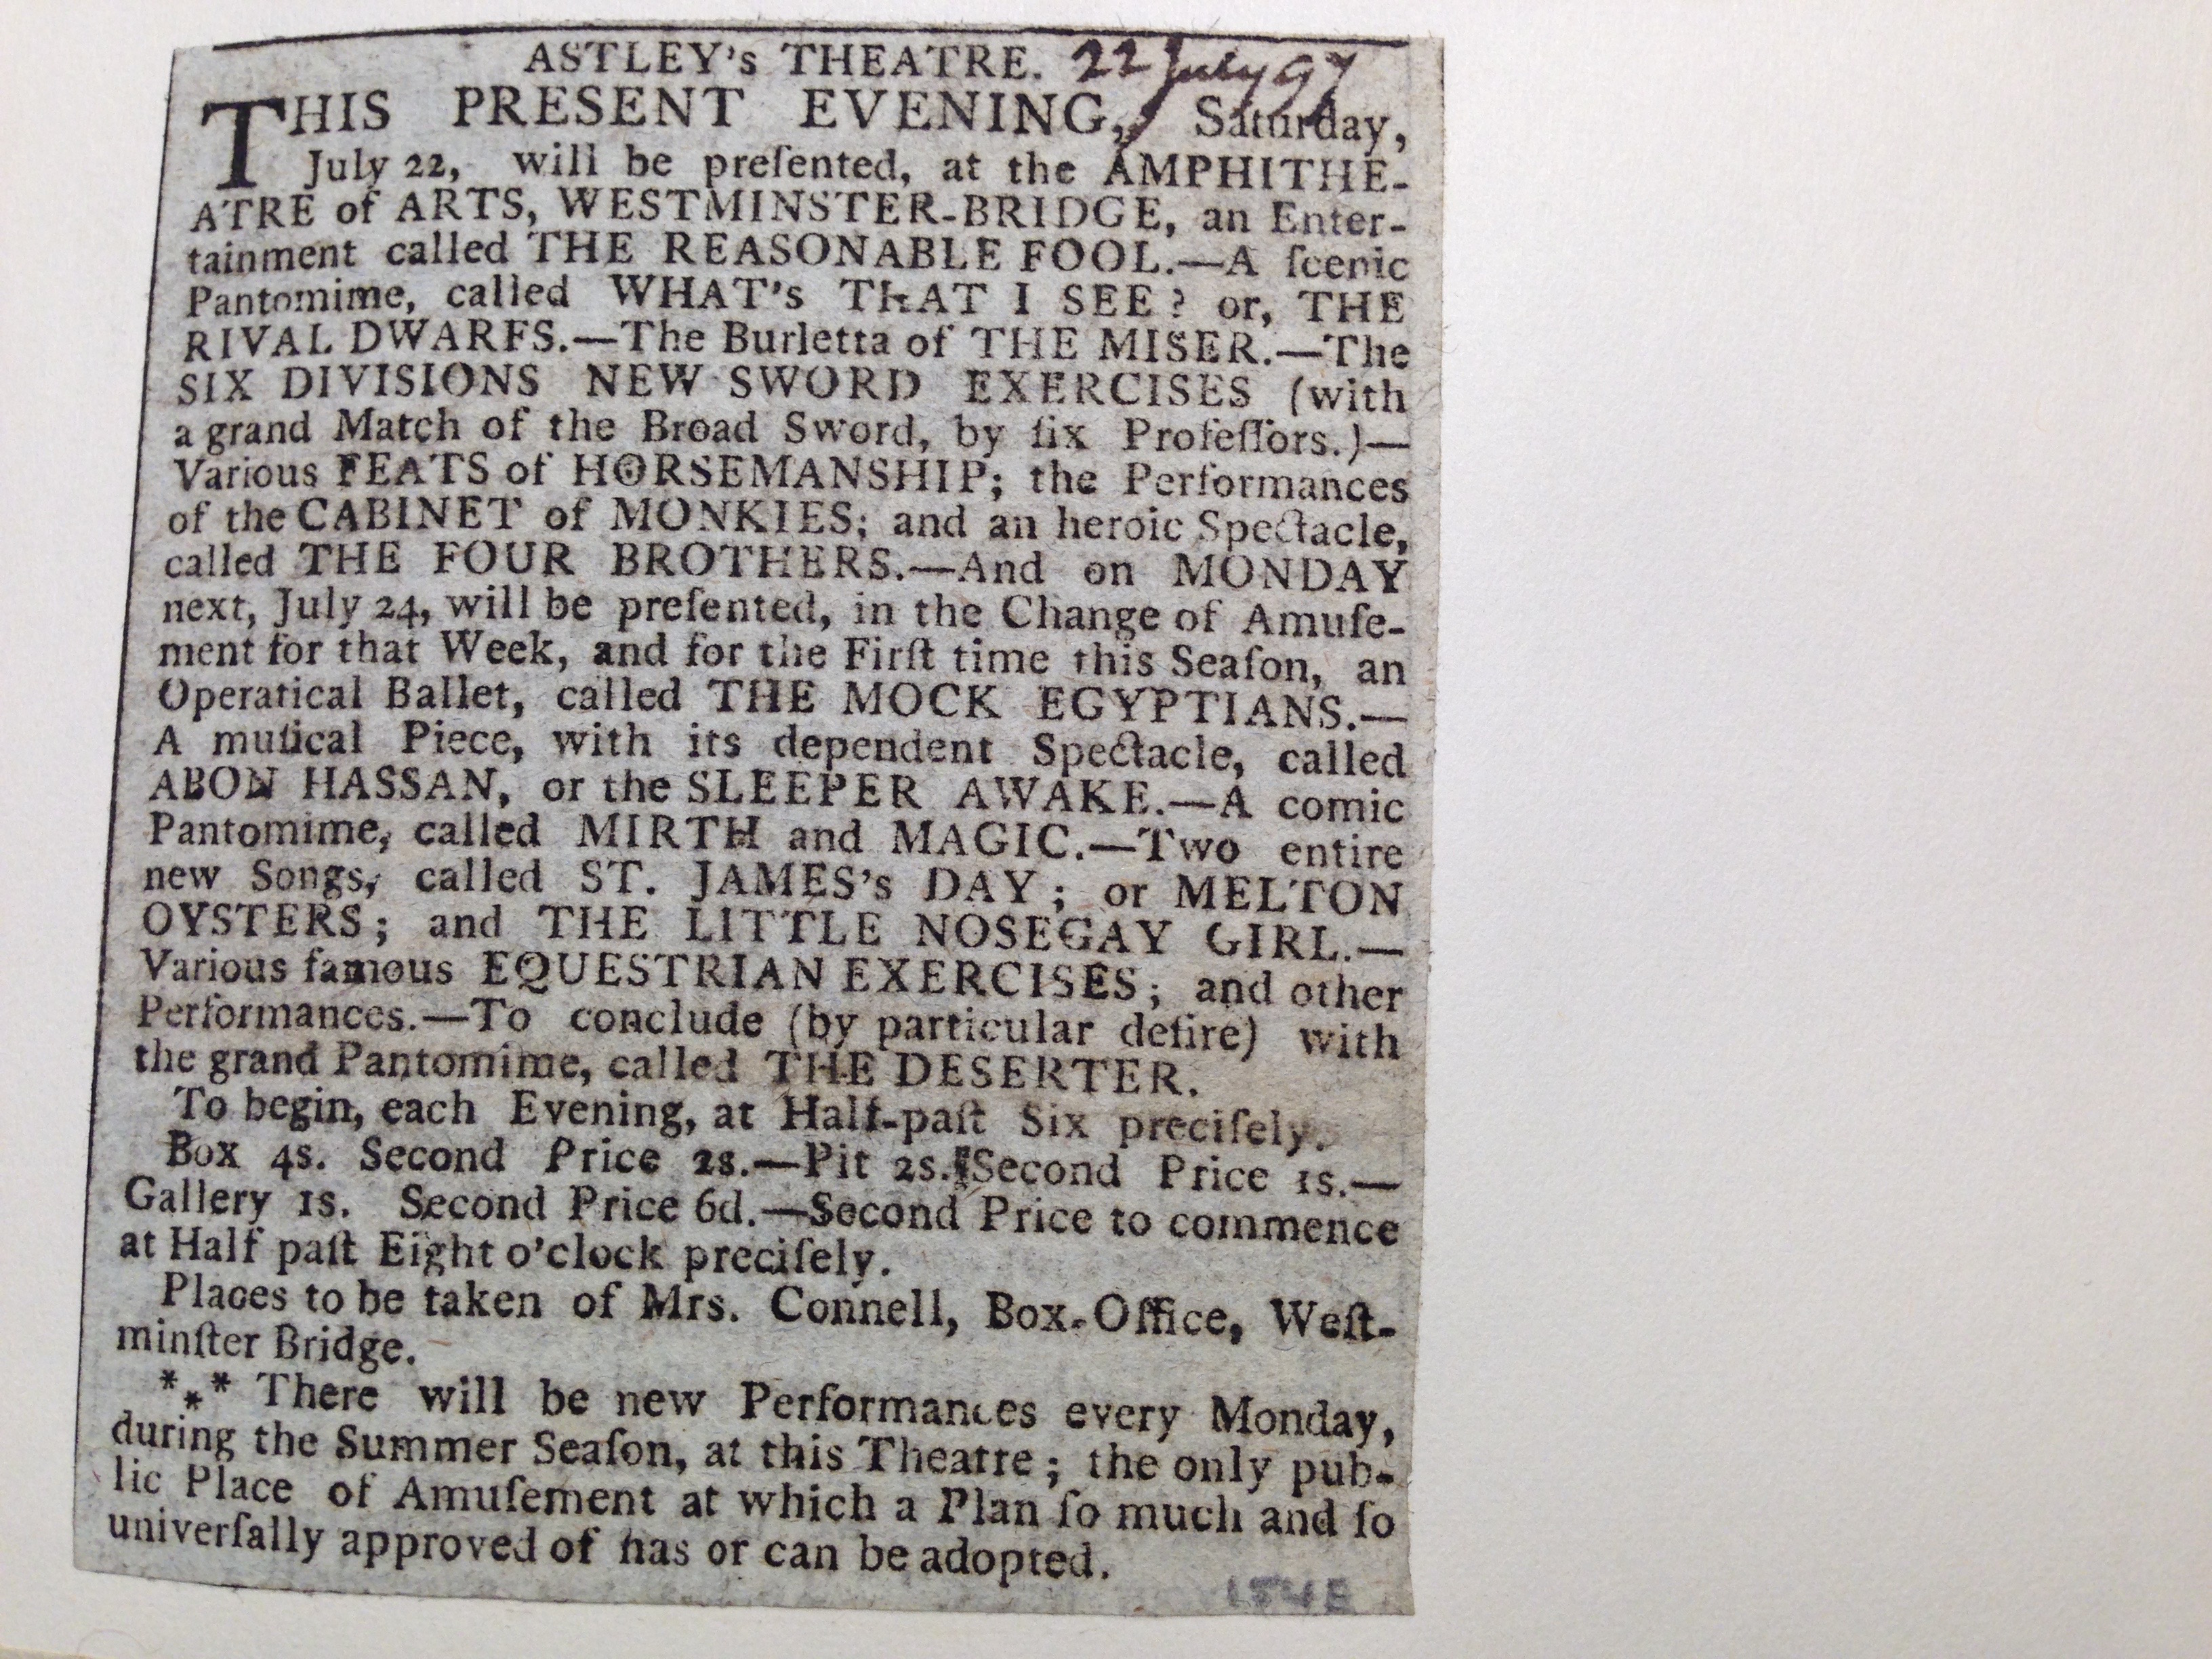 ASTLEY's THEATRE. 22 July 97
THIS PRESENT EVENING, Saturday,
July 22, will be preſented, at the AMPHITHE-
ATRE of ARTS, WESTMINSTER-BRIDGE, an Enter-
tainment called THE REASONABLE FOOL.—A ſcenic
Pantomime, called WHAT's THAT I SEE? or, THE
RIVAL DWARFS.—The Burletta of THE MISER.—The
SIX DIVISIONS NEW SWORD EXERCISES (with
a grand Match of the Broad Sword, by ſix Profeſſors.)—
Various FEATS of HORSEMANSHIP; the Performances
of the CABINET of MONKIES; and an heroic Spectacle,
called THE FOUR BROTHERS.—And on MONDAY
next, July 24, will be preſented, in the Change of Amuſe-
ment for that Week, and for the Firſt time this Seaſon, an
Operatical Ballet, called THE MOCK EGYPTIANS.—
A muſical Piece, with its dependent Spectacle, called
ABON HASSAN, or the SLEEPER AWAKE.—A comic
Pantomime, called MIRTH and MAGIC.—Two entire
new Songs, called ST. JAMES's DAY; or MELTON
OYSTERS; and THE LITTLE NOSEGAY GIRL.—
Various famous EQUESTRIAN EXERCISES; and other
Performances.—To conclude (by particular deſire) with
the grand Pantomime, called THE DESERTER.
To begin, each Evening, at Half-paſt Six preciſely.
Box 4s. Second Price 2s.—Pit 2s. Second Price 1s.—
Gallery 1s. Second Price 6d.—Second Price to commence
at Half paſt Eight o'clock preciſely.
Places to be taken of Mrs. Connell, Box-Office, Weſt-
minſter Bridge.
*⁎* There will be new Performances every Monday,
during the Summer Seaſon, at this Theatre; the only pub-
lic Place of Amuſement at which a Plan ſo much and ſo
univerſally approved of has or can be adopted.